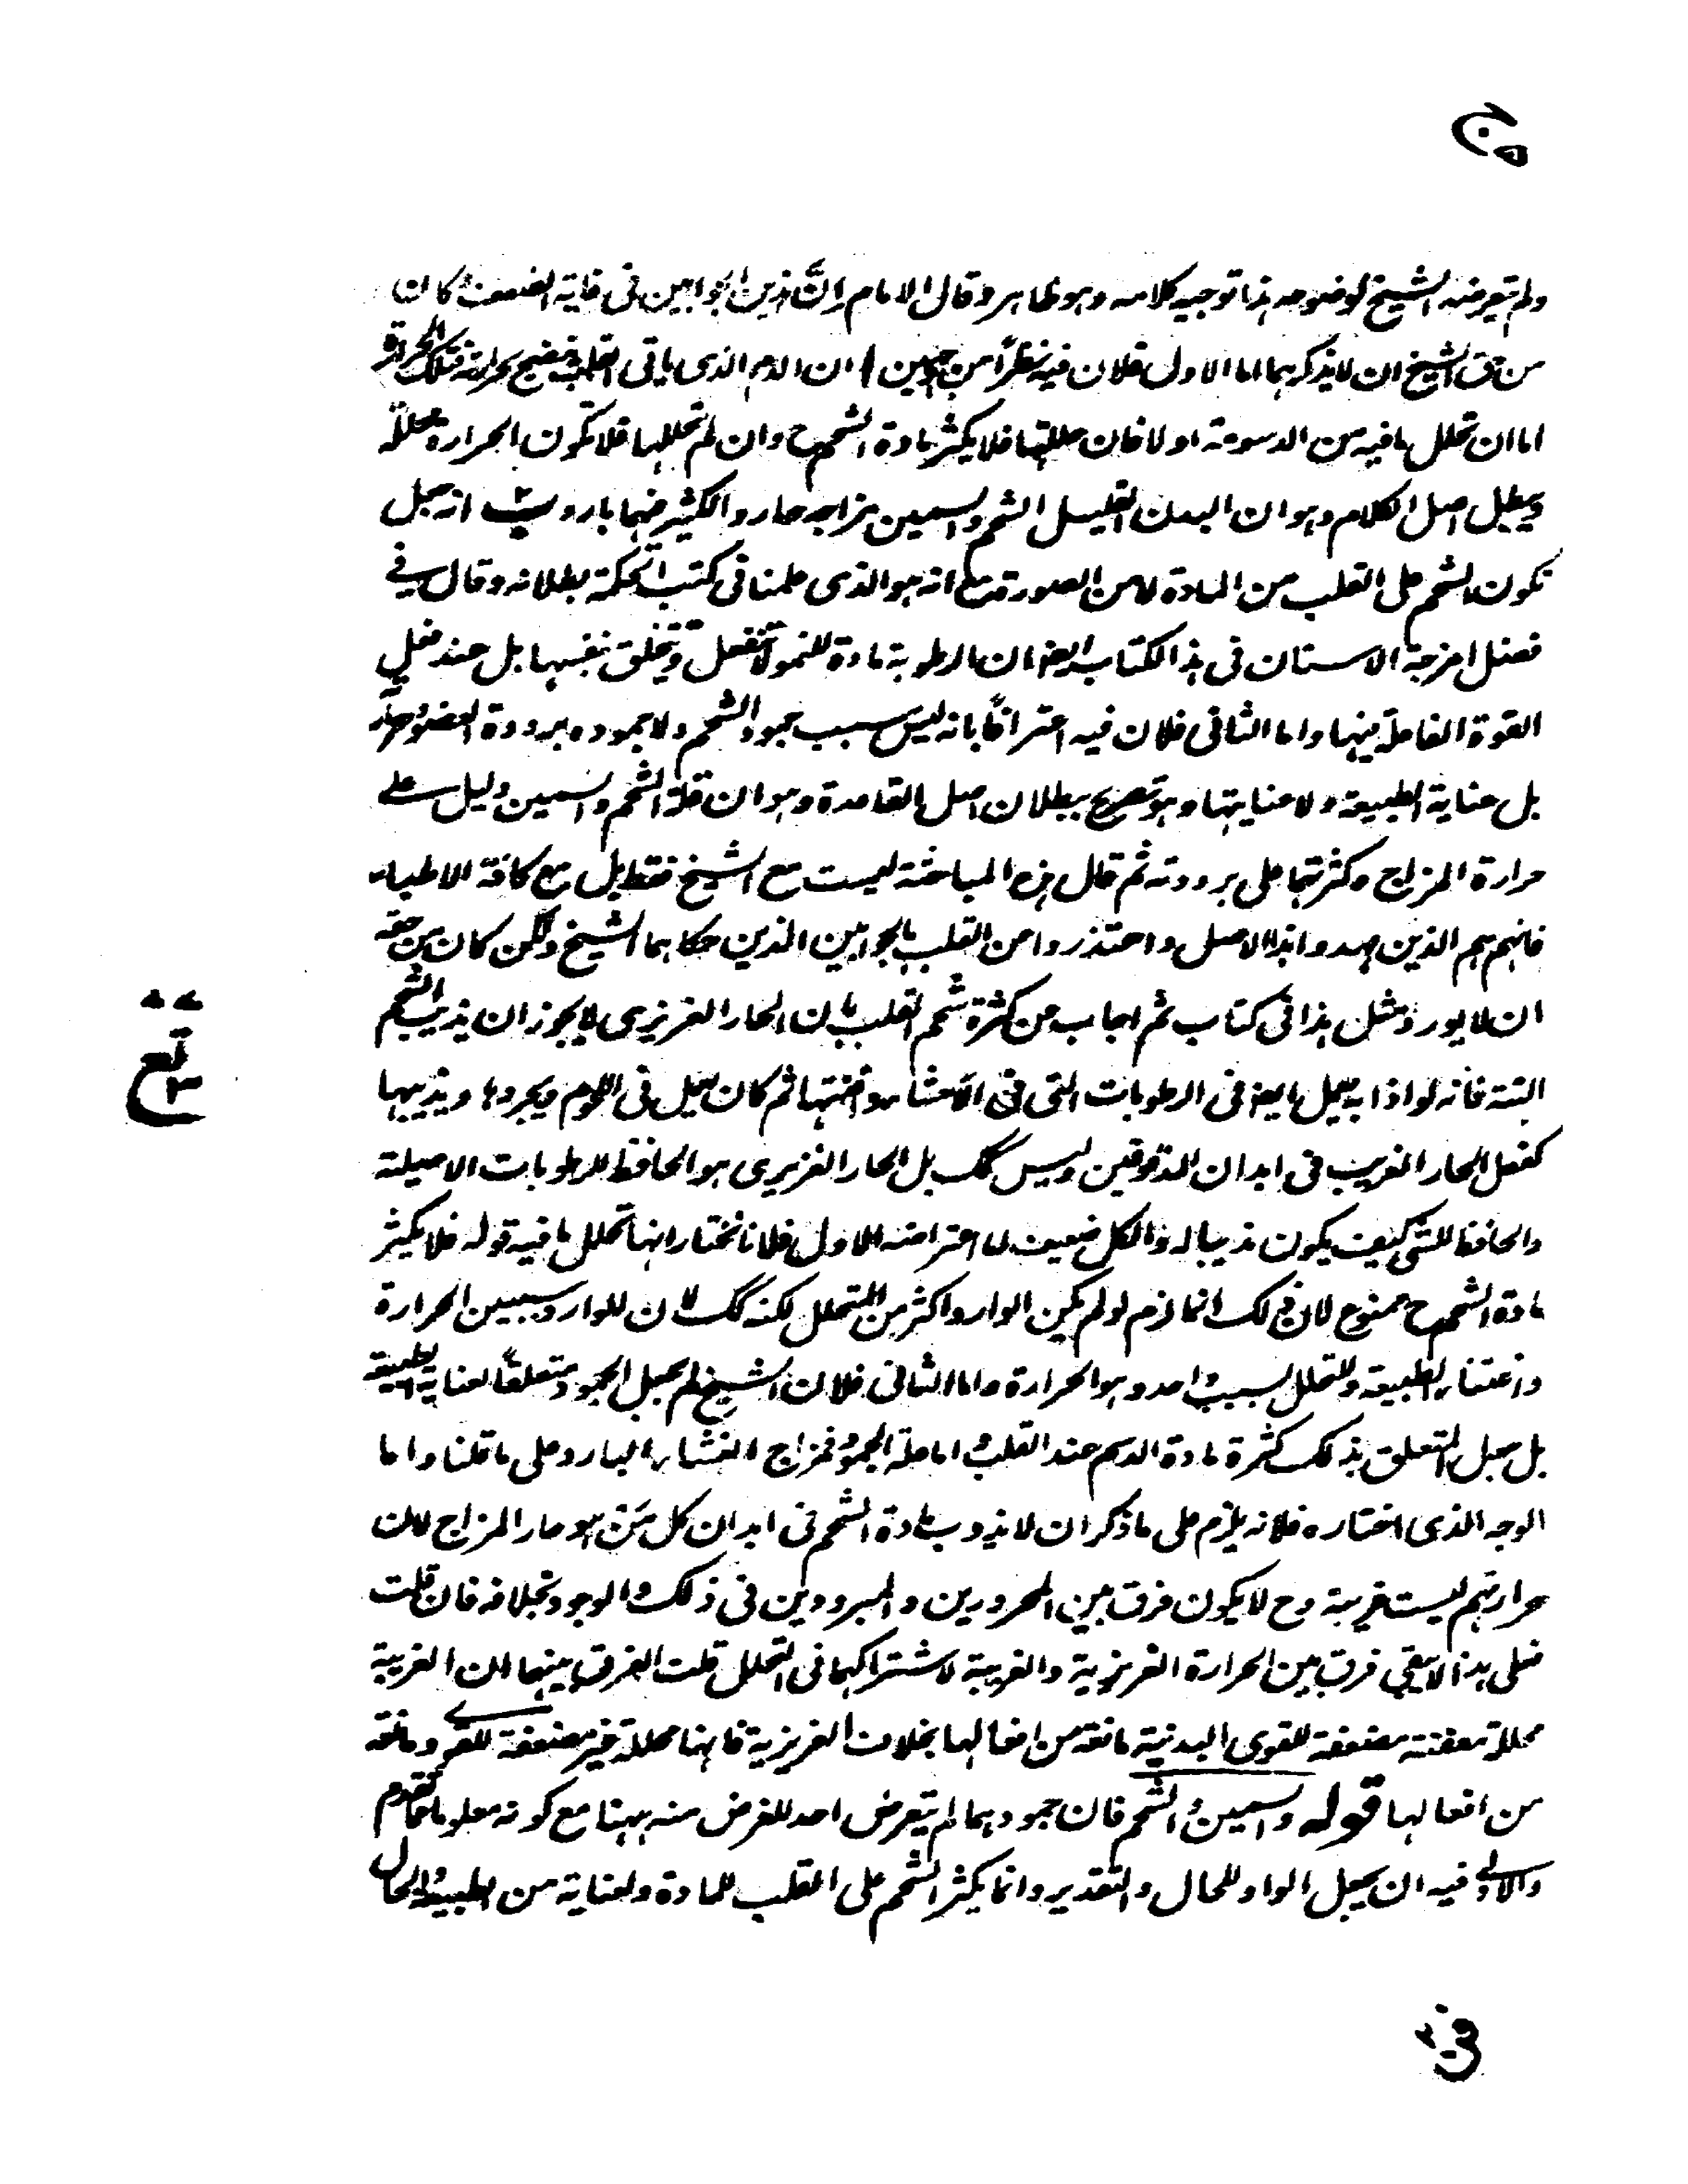 ولم يتعرضه الشيخ لوضوحه هذا توجيه كلامه وهو ظاهر وقال الامام ان هذين الجوابين فى غاية الضعف وكان
من حق الشيخ ان لا يذكرهما اما الاول فلان فيه نظرا من وجهين ا ان الدم الذى ياتى القلب فينضج بحرارته فتلك الحرارة
اما ان تحلل مافيه من الدسومة او لا فان حللتها فلا يكثر مادة الشحم ح وان لم تحللها فلا تكون الحرارة محللة
ويبطل اصل الكلام وهو ان البدن القليل الشحم والسمين مزاجه حار والكثير منهما بارد ب انه جعل
تكون الشحم على القلب من المادة لا من الصورة مع انه هو الذى علمنا فى كتب الحكمة بطلانه وقال فى
فصل امزجة الاسنان فى هذا الكتاب ايضا ان الرطوبة مادة للنمو لا تنفعل وتتخلق بنفسها بل عند فعل
القوة الفاعلة فيها واما الثانى فلان فيه اعترافا بانه ليس سبب جمود الشحم ولا جموده برودة العضو وحره
بل عناية الطبيعة ولا عنايتها وهو تصريح ببطلان اصل القاعدة وهو ان قلة الشحم والسمين دليل على
حرارة المزاج وكثرتهما على برودته ثم قال هذه المباحثة ليست مع الشيخ فقط بل مع كافة الاطباء
فانهم هم الذين مهدوا هذا الاصل واعتذروا من القلب بالجوابين الذين حكاهما الشيخ ولكن كان من حقه
ان لا يورد مثل هذا فى كتاب ثم اجاب من كثرة شحم القلب بان الحار الغريزى لا يجوز ان يذيب الشحم
البتة فانه لو اذابه لعمل ايضا فى الرطوبات التى فى الاعضاء وافنتها ثم كان يعمل فى اللحوم فيجردها ويذيبها
كفعل الحار الغريب فى ابدان المدقوقين وليس كك بل الحار الغريزى هو الحافظ للرطوبات الاصلية
والحافظ للشى كيف يكون مذيبا له والكل ضعيف اما اعتراضه الاول فلانا نختار انها تحلل ما فيه قوله فلا يكثر
مادة الشحم ح ممنوع لان ذلك انما لزم لو لم يكن الوارد اكثر من المتحلل لكنه كك لان للوارد سببين الحرارة
واعتناء الطبيعة وللتحلل سبب واحد وهو الحرارة واما الثانى فلان الشيخ لم يجعل الجمود متعلقا لعناية الطبيعة
بل جعل المتعلق بذلك كثرة مادة الدسم عند القلب واما علة الجمود فمزاج الغشاء البارد على ما قلنا واما
الوجه الذى اختاره فلانه يلزم على ما ذكر ان لا يذوب مادة الشحم فى ابدان كل من هو حار المزاج لان
حرارتهم ليست غريبة وح لا يكون فرق بين المحرورين والمبرودين فى ذلك والوجود بخلافه فان قلت
فعلى هذا لا يبقى فرق بين الحرارة الغريزية والغريبة لاشتراكهما فى التحلل قلت الفرق بينهما ان الغريبة
محللة معفنة مضعفة للقوى البدنية مانعة من افعالها بخلاف الغريزية فانها محللة غير مضعفة للقوى ومانعة
من افعالها قوله والسمين والشحم فان جمودهما لم يتعرض احد للغرض منه ههنا مع كونه معلوما مما تقدم
والاولى فيه ان يجعل الواو للحال والتقدير وانما يكثر الشحم على القلب للمادة ولعناية من الطبيعة والحال